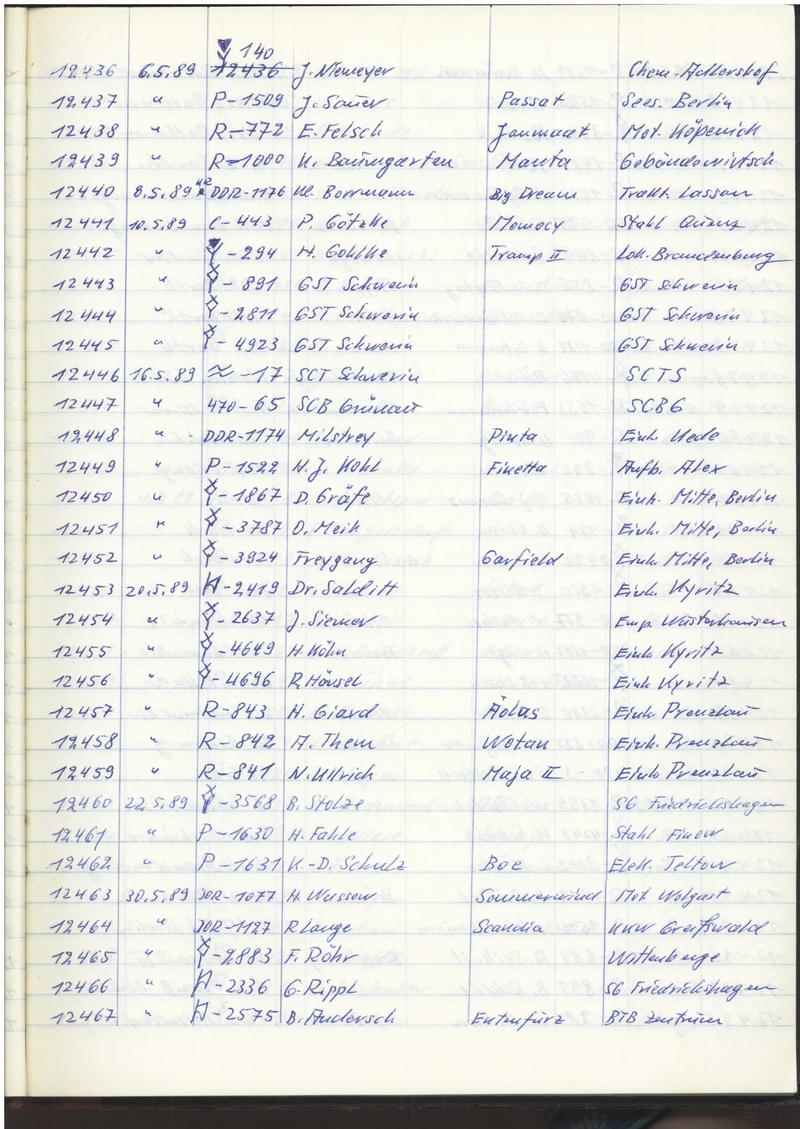 140
12436 6.5.89 12436 J. Niemeyer Chem. Adlershof
12437 " P-1509 J. Sauer Passat Sees. Berlin
12438 " R-772 E. Felsch Janmaat Mot. Köpenick
12439 " R-1000 K. Baumgarten Manta Gebäudewirtsch
12440 8.5.89 DDR-1176 Kl. Borrmann Big Dream Trakt. Lassan
12441 10.5.89 C-443 P. Götzke Memory Stahl
12442 " -294 H. Gohlke Tramp II Lok. Brandenburg
12443 " -891 GST Schwerin GST Schwerin
12444 " -2811 GST Schwerin GST Schwerin
12445 " -4923 GST Schwerin GST Schwerin
12446 16.5.89 -17 SCT Schwerin SCTS
12447 " 470-65 SCB Grünau SCBG
12448 " DDR-1174 Milstrey Pinta Einh.
12449 " P-1522 H.J. Kohl Finetta Aufb. Alex
12450 " Y-1867 D. Gräfe Einh. Mitte, Berlin
12451 " Y-3787 O. Meih Einh. Mitte, Berlin
12452 " Y-3924 Freygang Garfield Einh. Mitte, Berlin
12453 20.5.89 H-2419 Dr. Salditt Einh. Kyritz
12454 " Y-2637 J. Siemer Emp. Wusterhausen
12455 " Y-4649 H. Köhn Einh. Kyritz
12456 " Y-4696 R. Hänsel Einh. Kyritz
12457 " R-843 H. Giard Äolus Einh. Prenzlau
12458 " R-842 A. Them Wotan Einh. Prenzlau
12459 " R-841 N. Ullrich Maja II Einh. Prenzlau
12460 22.5.89 Y-3568 B. Stolze SG Friedrichshagen
12461 " P-1630 H. Fahle Stahl Finow
12462 " P-1631 K.-D. Schulz Boe Elek. Teltow
12463 30.5.89 DDR-1077 H. Wussow Sommerwind Mot. Wolgast
12464 " DDR-1127 R. Lange Scandia KKW Greifswald
12465 " Y-2883 F. Röhr Wittenberge
12466 " H-2336 G. Rippl SG Friedrichshagen
12467 " H-2575 B. Andersch Entenfürz BTB Zentrum